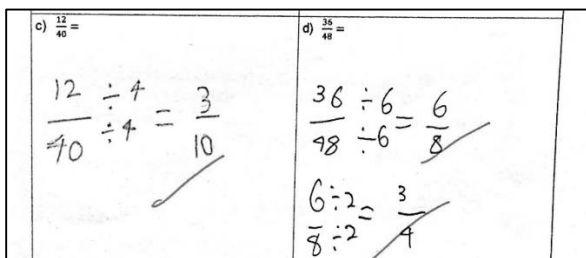 c) 12/40 =
12/40 ÷4/÷4 = 3/10
d) 36/48 =
36/48 ÷6/÷6 = 6/8
6/8 ÷2/÷2 = 3/4